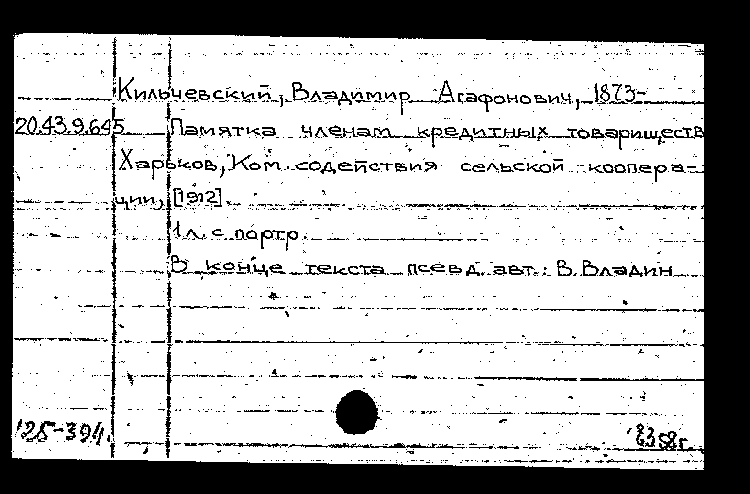 Кильчевский, Владимир Агафонович, 1873-
20.43.9.645 Памятка членам кредитных товариществ
Харьков, Ком. содействия сельской коопера-
ции, [1912].
1 л. с портр.
В конце текста псевд. авт.: В. Владин
125-394.